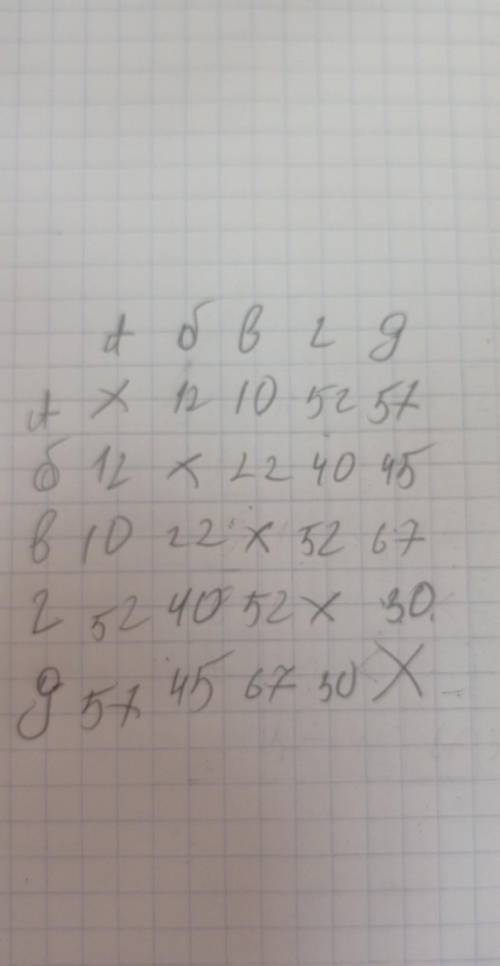 а б в г д
а х 12 10 52 57
б 12 х 22 40 45
в 10 22 х 52 67
г 52 40 52 х 30
д 57 45 67 30 х